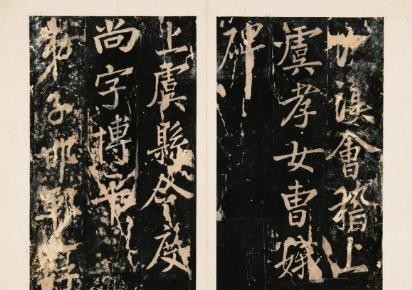 漢會稽上
虞孝女曹娥
碑
上虞縣令度
尚字博
弟子邯鄲